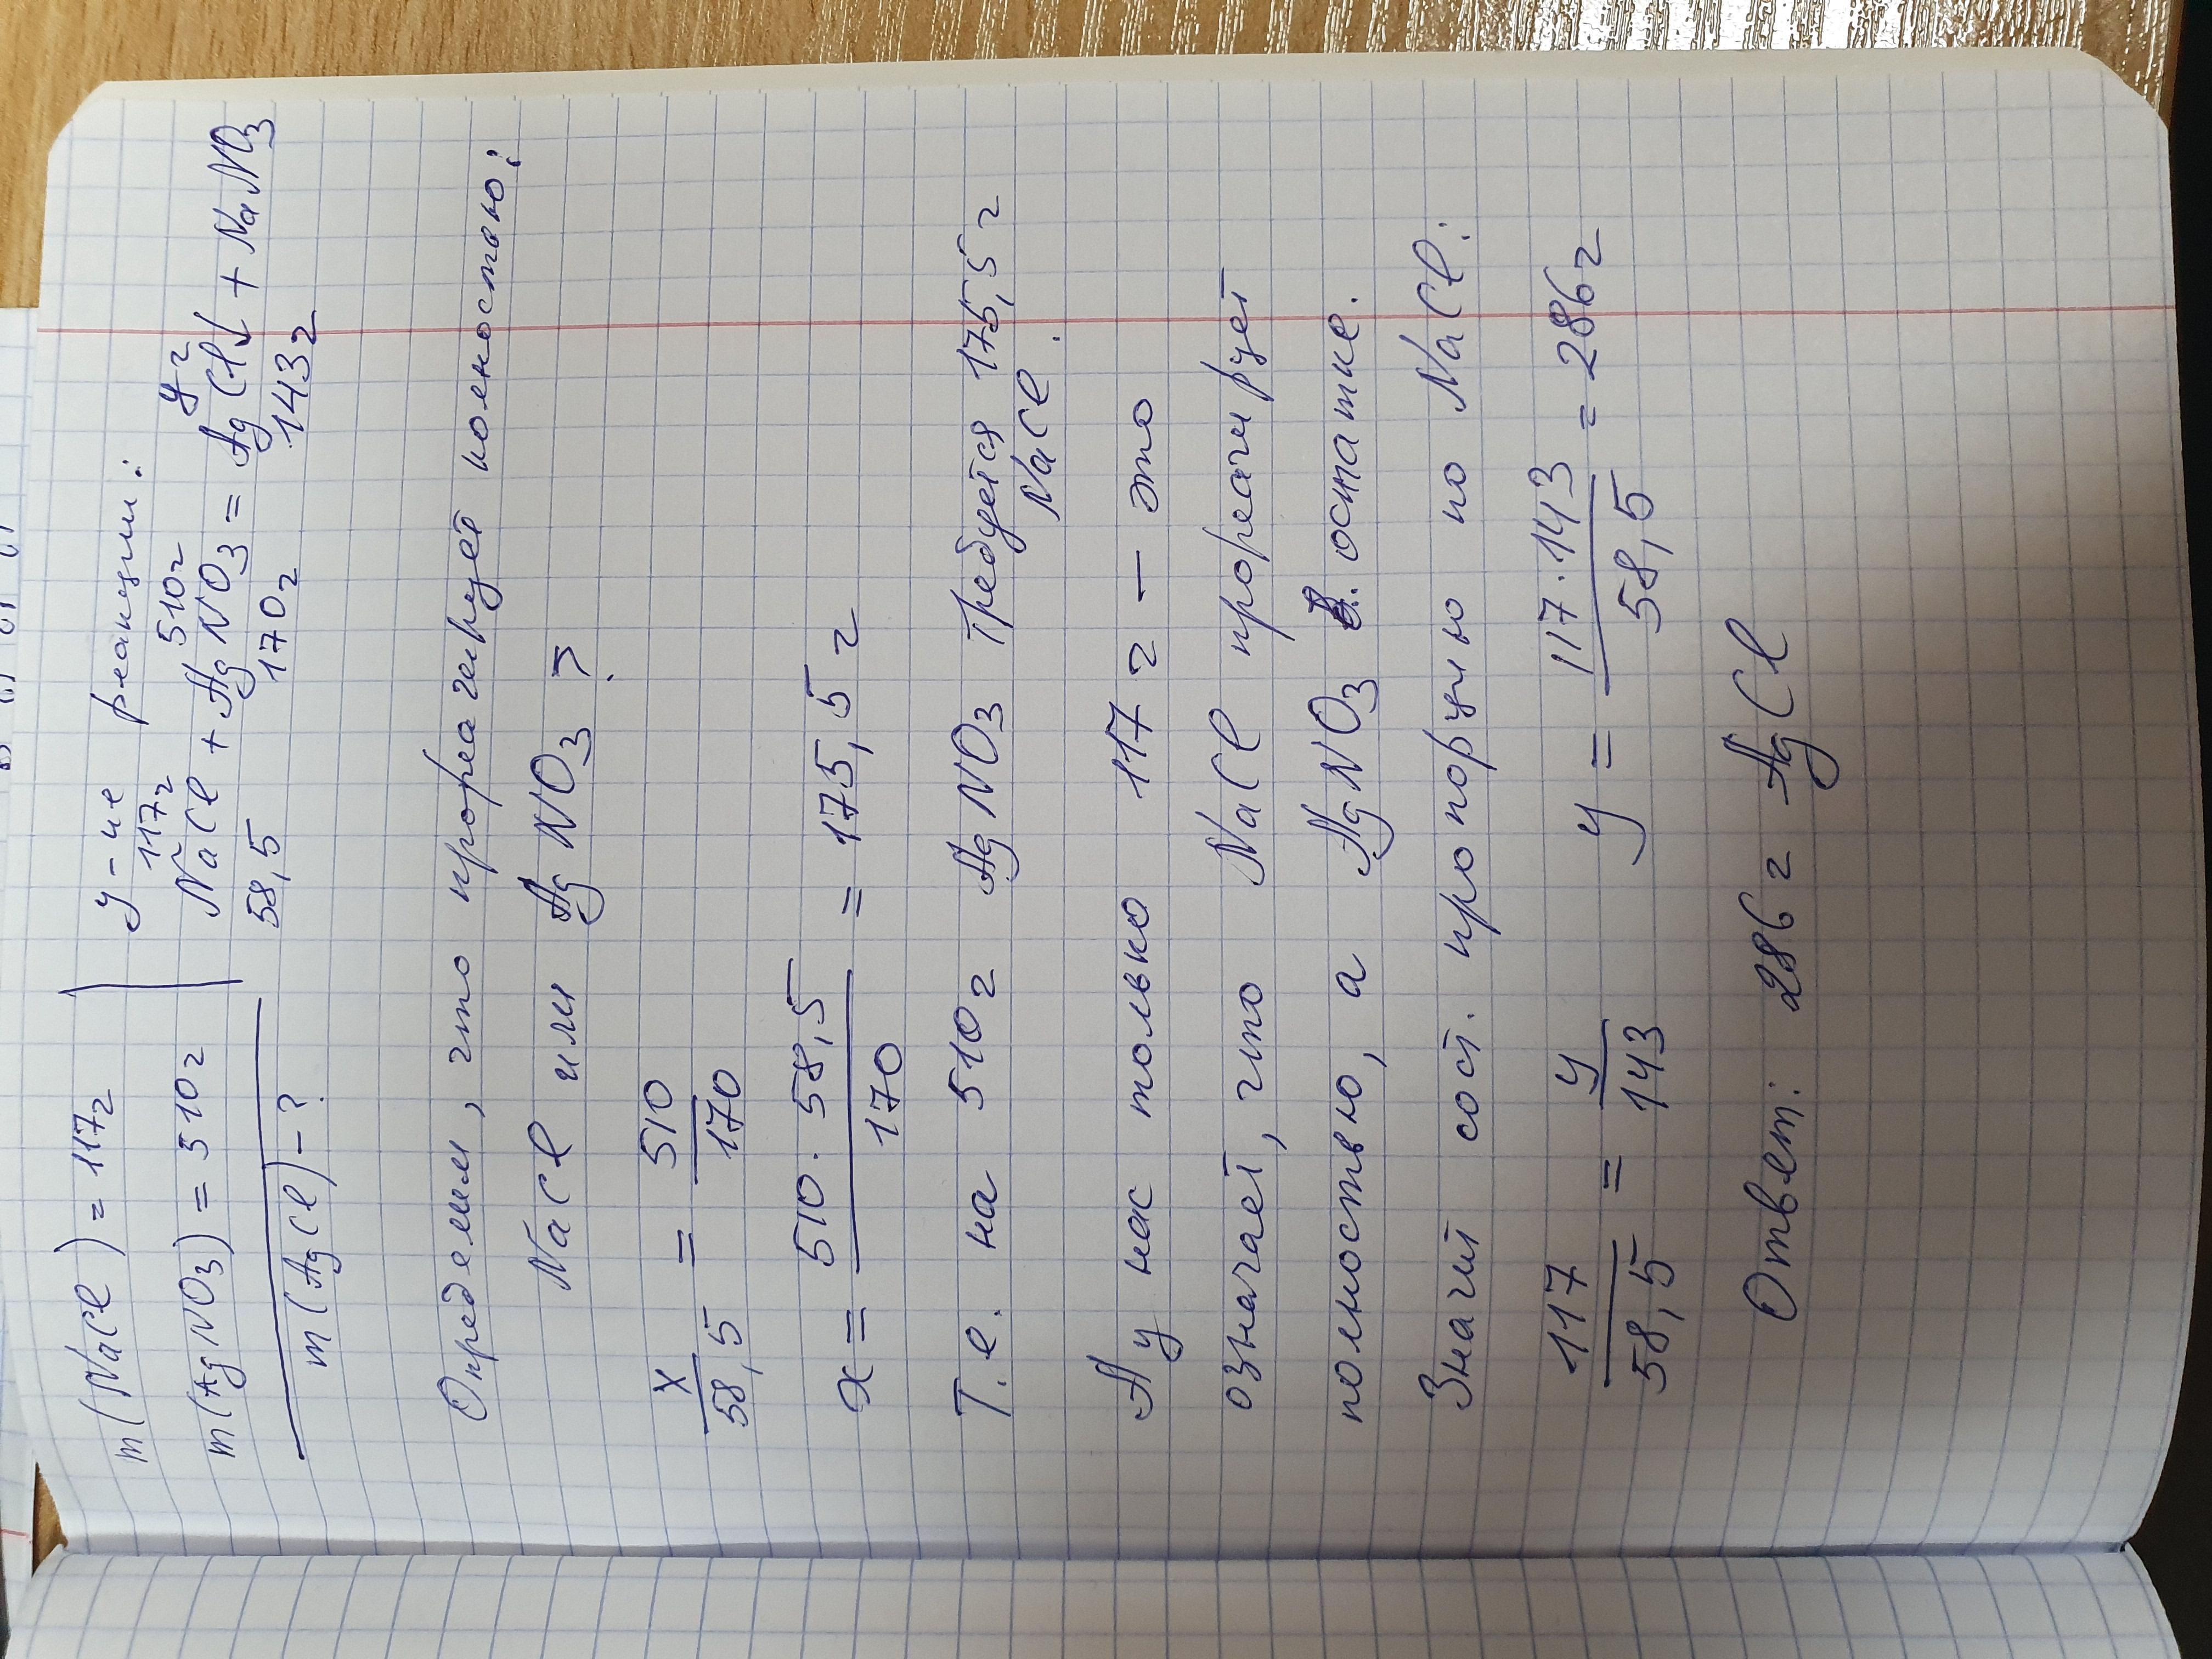 m(NaCl) = 117г
m(AgNO3) = 510г
m(AgCl) - ?
у-ие реакции:
117г 510г y г
NaCl + AgNO3 = AgCl↓ + NaNO3
58,5 170г 143г
Определим, что прореагирует полностью:
NaCl или AgNO3?
x/58,5 = 510/170
x = 510·58,5/170 = 175,5 г
Т.е. на 510г AgNO3 требуется 175,5г
NaCl.
А у нас только 117г - это
означает, что NaCl прореагирует
полностью, а AgNO3 в. остатке.
Значит сост. пропорцию по NaCl:
117/58,5 = y/143 y = 117·143/58,5 = 286г
Ответ: 286г AgCl